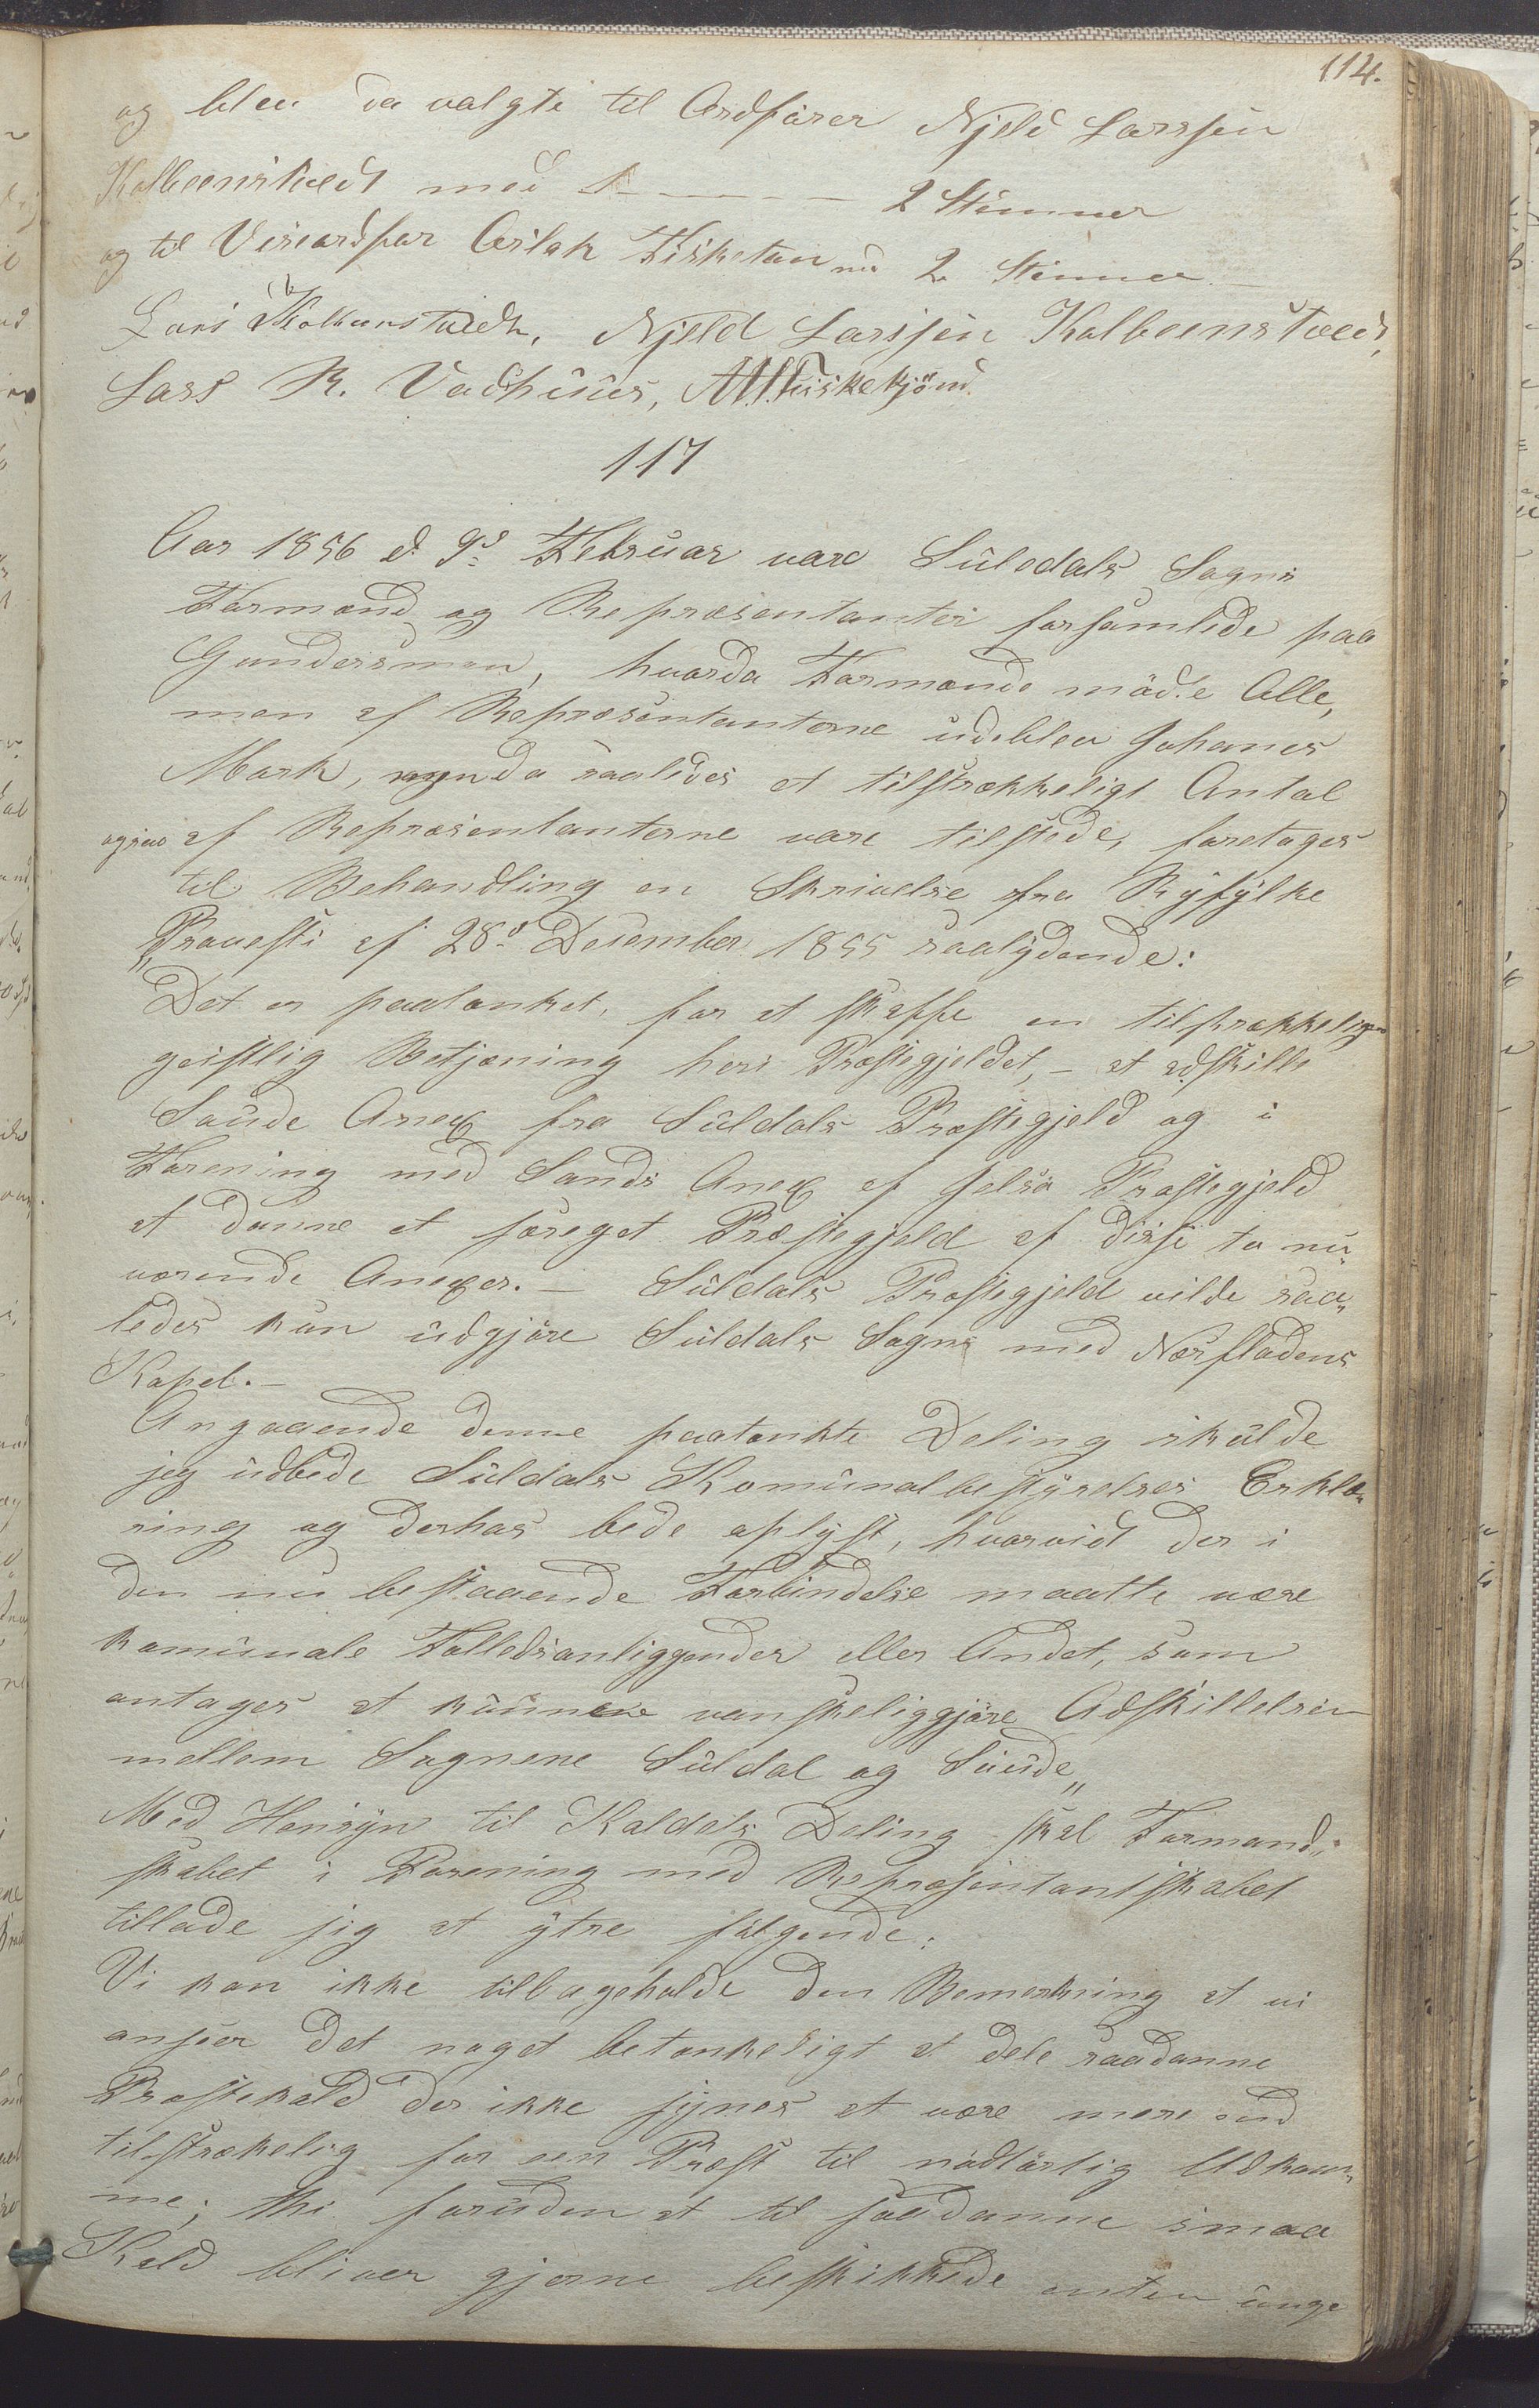 114.
og blev da valgte til Ordfører Njeld Larssen
Kolbeenstvedt med - - - - - 2 Stemmer
og til Viseordfør Aslak Fisketøn med 2 Stemmer
Lars Kolbenstvedt, Njeld Larssen Kolbeenstvedt,
Lars R. Vadhuus, Fisketjönd
117
Aar 1856 d. 9d Februar vare Süledals Sogns
Formænd og Repræsentanter forsamlede paa
Gundersmon, hvorda Formænde mödte Alle,
men af Repræsentanterne udeblev Johanes
Mork, da saaledes et tilstrækkeligt Antal
af Repræsentanterne vare tilstede, foretages
til Behandling en Skrivelse fra Ryfylke
„Provesti af 28d Desember 1855 saalydende:
Det er paatænkt, for at skaffe en tilstrækkeligere
geistlig Betjæning heri Præstegjeldet, - at adskille
Saude Anex fra Süldals Præstegjeld og i
Forening med Sands Anex af Jelsø Præstegjeld
at danne et særeget Præstegjeld af disse to nu„
værende Anexer. - Süldals Præstegjeld vilde saa„
ledes kun udgjøre Süldals Sogn med Næsfladens
Kapel. -
Angaaende denne paatænkte Deling skulde
jeg udbede Süldals Komunalbestyrelses Erklæ„
ring og derhos bede oplyst, hvorvidt der i
den nu bestaaende Forbindelse maatte være
komunale Fælledsanliggender eller Andet, som
antages at kunne vanskeliggjøre Adskillelsen
mellem Sognene Süldal og Saude„
Med Hensyn til Kaldets Deling skal Formands„
skabet i Forening med Repræsentantskabet
tillade sig at ytre følgende:
Vi kan ikke tilbageholde den Bemerkning at vi
anseer det noget betænkeligt at dele saadanne
Præstekald der ikke synes at være mere end
tilstrækelig for een Præst til nødtörtig Udkom„
me; thi foruden at til saadanne smaa
Kald bliver gjerne beskikkede enten unge